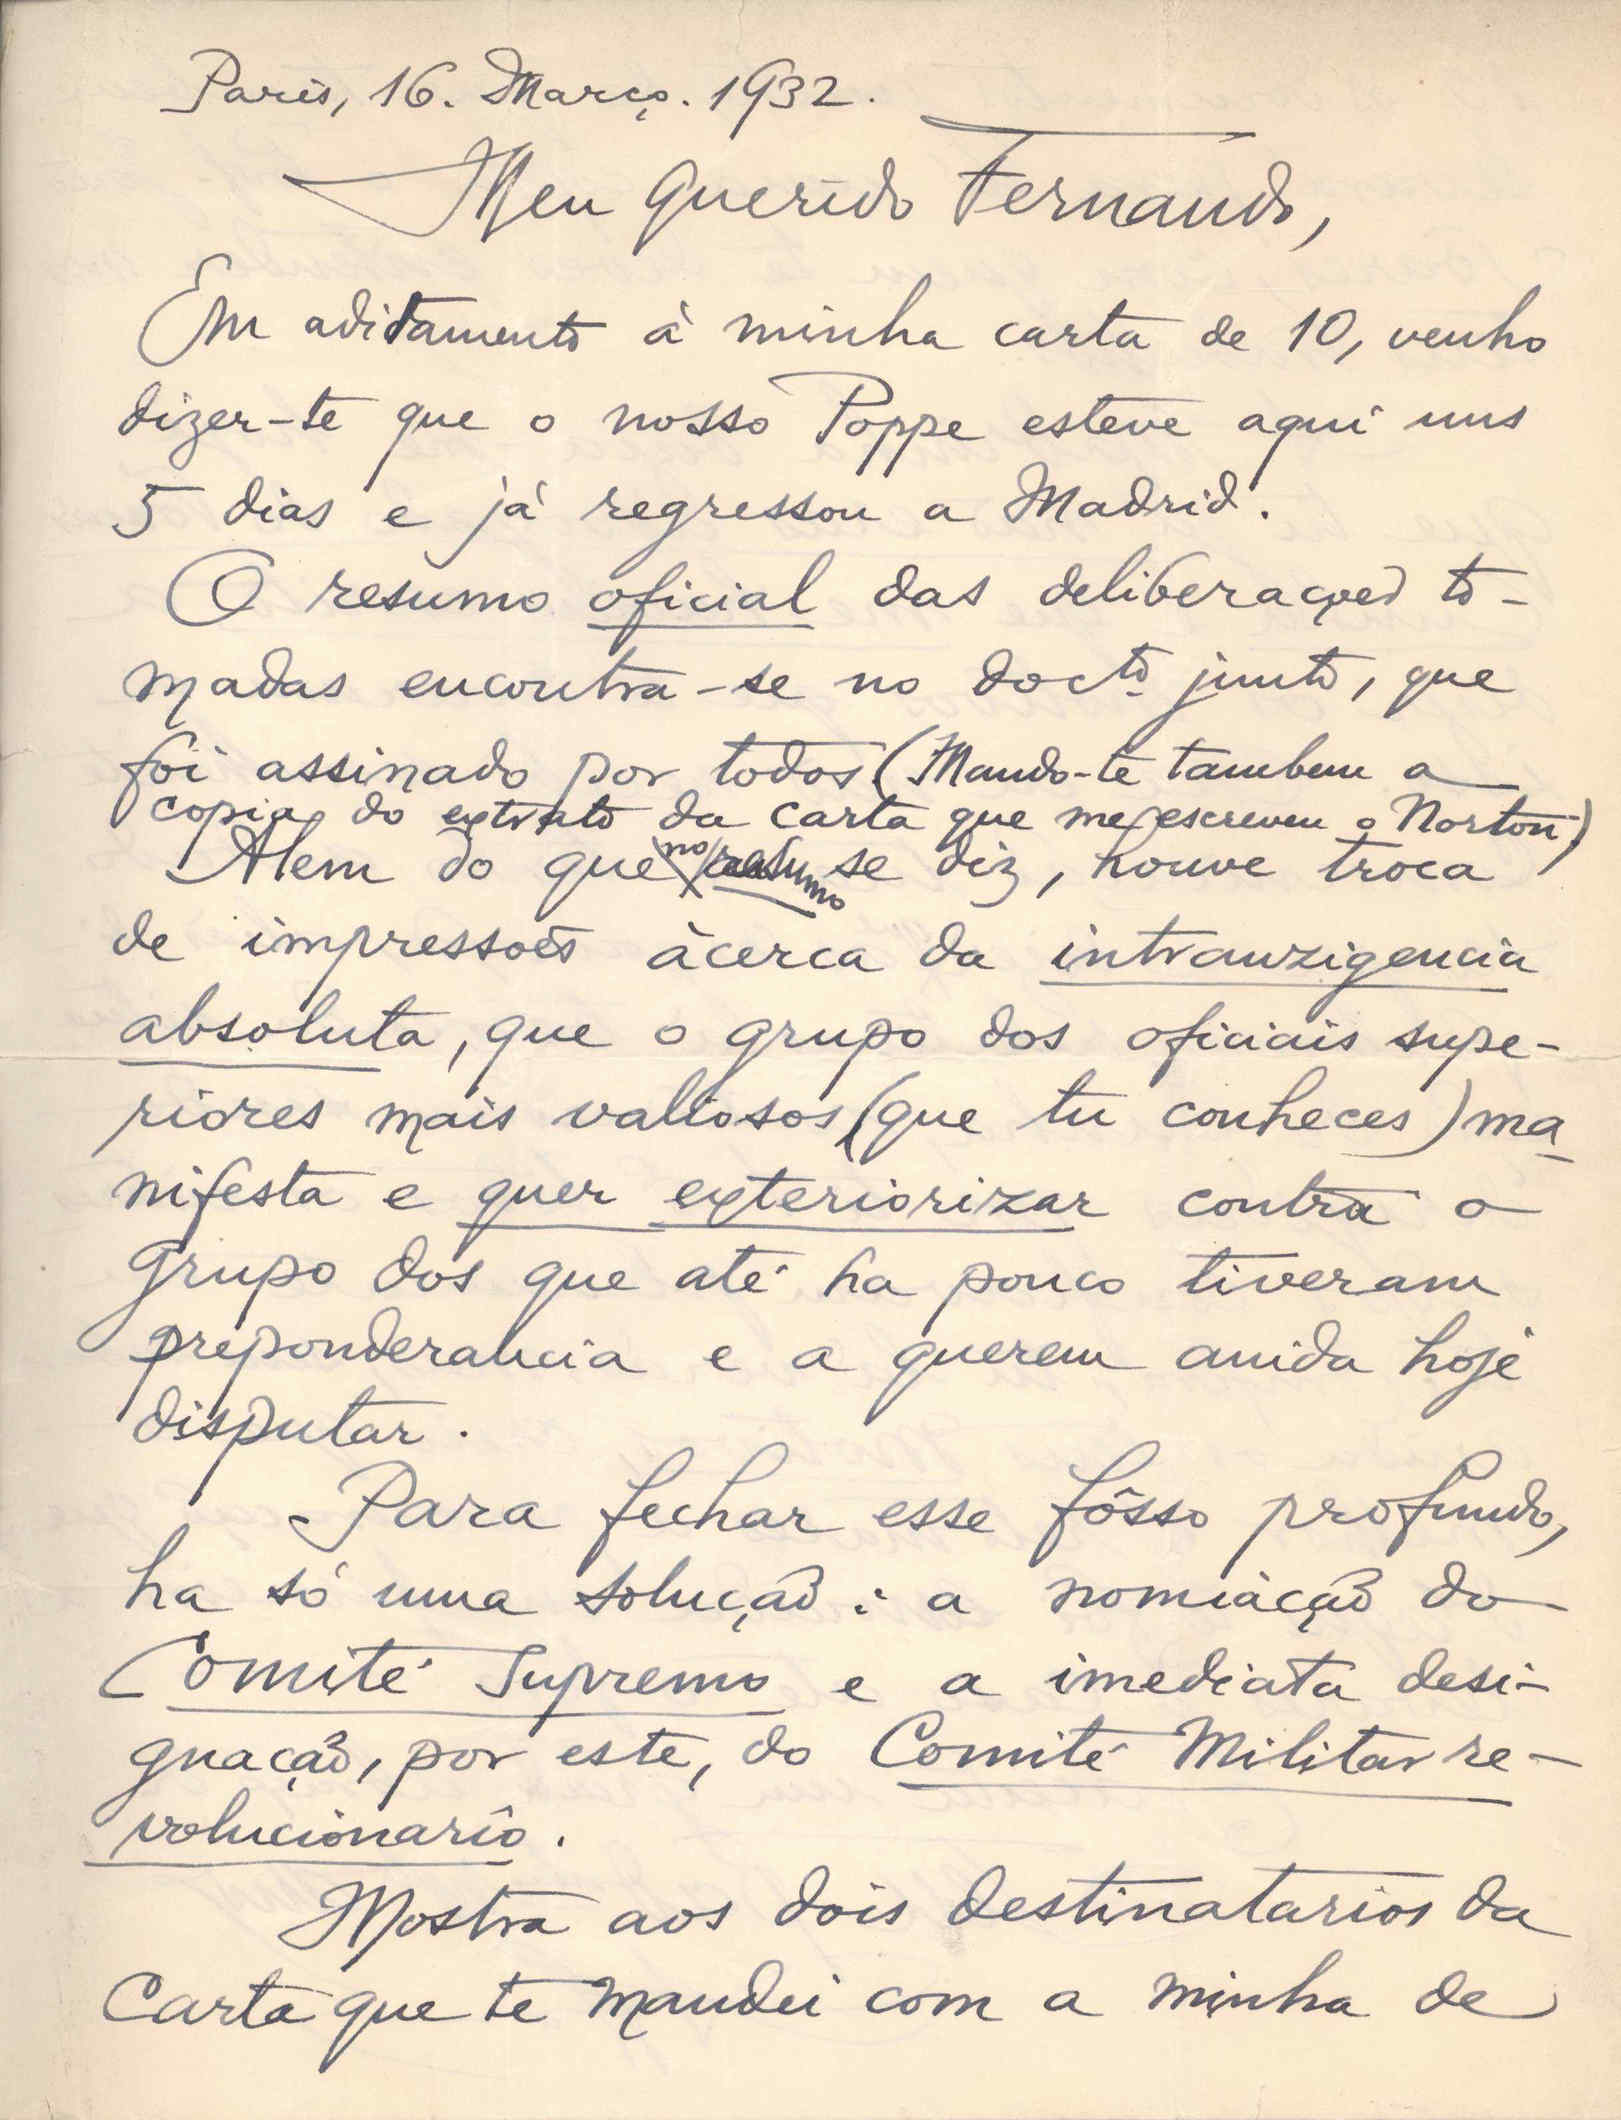 Paris, 16. Março. 1932.
Meu querido Fernando,
Em aditamento à minha carta de 10, venho
dizer-te que o nosso Poppe esteve aqui uns
5 dias e já regressou a Madrid.
O resumo oficial das deliberações to-
madas encontra-se no docto junto, que
foi assinado por todos (Mando-te tambem a
copia do extrato da carta que me escreveu o Norton)
Alem do que no resumo se diz, houve troca
de impressoēs àcerca da intranzigencia
absoluta, que o grupo dos oficiais supe-
riores mais valiosos (que tu conheces) ma-
nifesta e quer exteriorizar contra o
grupo dos que até ha pouco tiveram
preponderancia e a querem ainda hoje
disputar.
Para fechar esse fôsso profundo,
ha só uma solução: a nomiação do
Comité Supremo e a imediata desi-
gnação, por este, do Comité Militar re-
volucionario.
Mostra aos dois destinatarios da
Carta que te mandei com a minha de